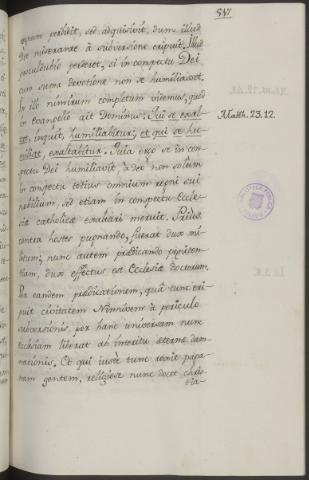 841
regnum perdidit, sed adquisivit, dum illud
Deo miserante à subversione eripuit. Illud
proculdubio perderet, si in conspectu Dei
cum summa devotione non se humiliasset.
In illo nimirum completum videmus, quod
in evangelio ait Dominus: Qui se exal-
tat, inquit, humiliabitur; et qui se hu-
miliat, exaltabitur. Quia ergo se in con-
spectu Dei humiliavit, ideò non solum
in conspectu totius omnium regni sui
nobilium, sed etiam in conspectu Eccle-
siæ catholicæ exaltari meruit. Prius
contra hostes pugnando, fuerat dux mi-
litum; nunc autem prædicando pœniten-
tiam, dux effectus est Ecclesiæ doctorum.
Per eandem prædicationem, quâ tunc eri-
puit civitatem Ninivem à periculo
subversionis, per hanc universam nunc
Ecclesiam liberat ab interitu æternæ dam-
nationis. Et qui iustè tunc rexit paga-
nam gentem, religiosè nunc docet chris-
tia-
Matth. 23. 12.